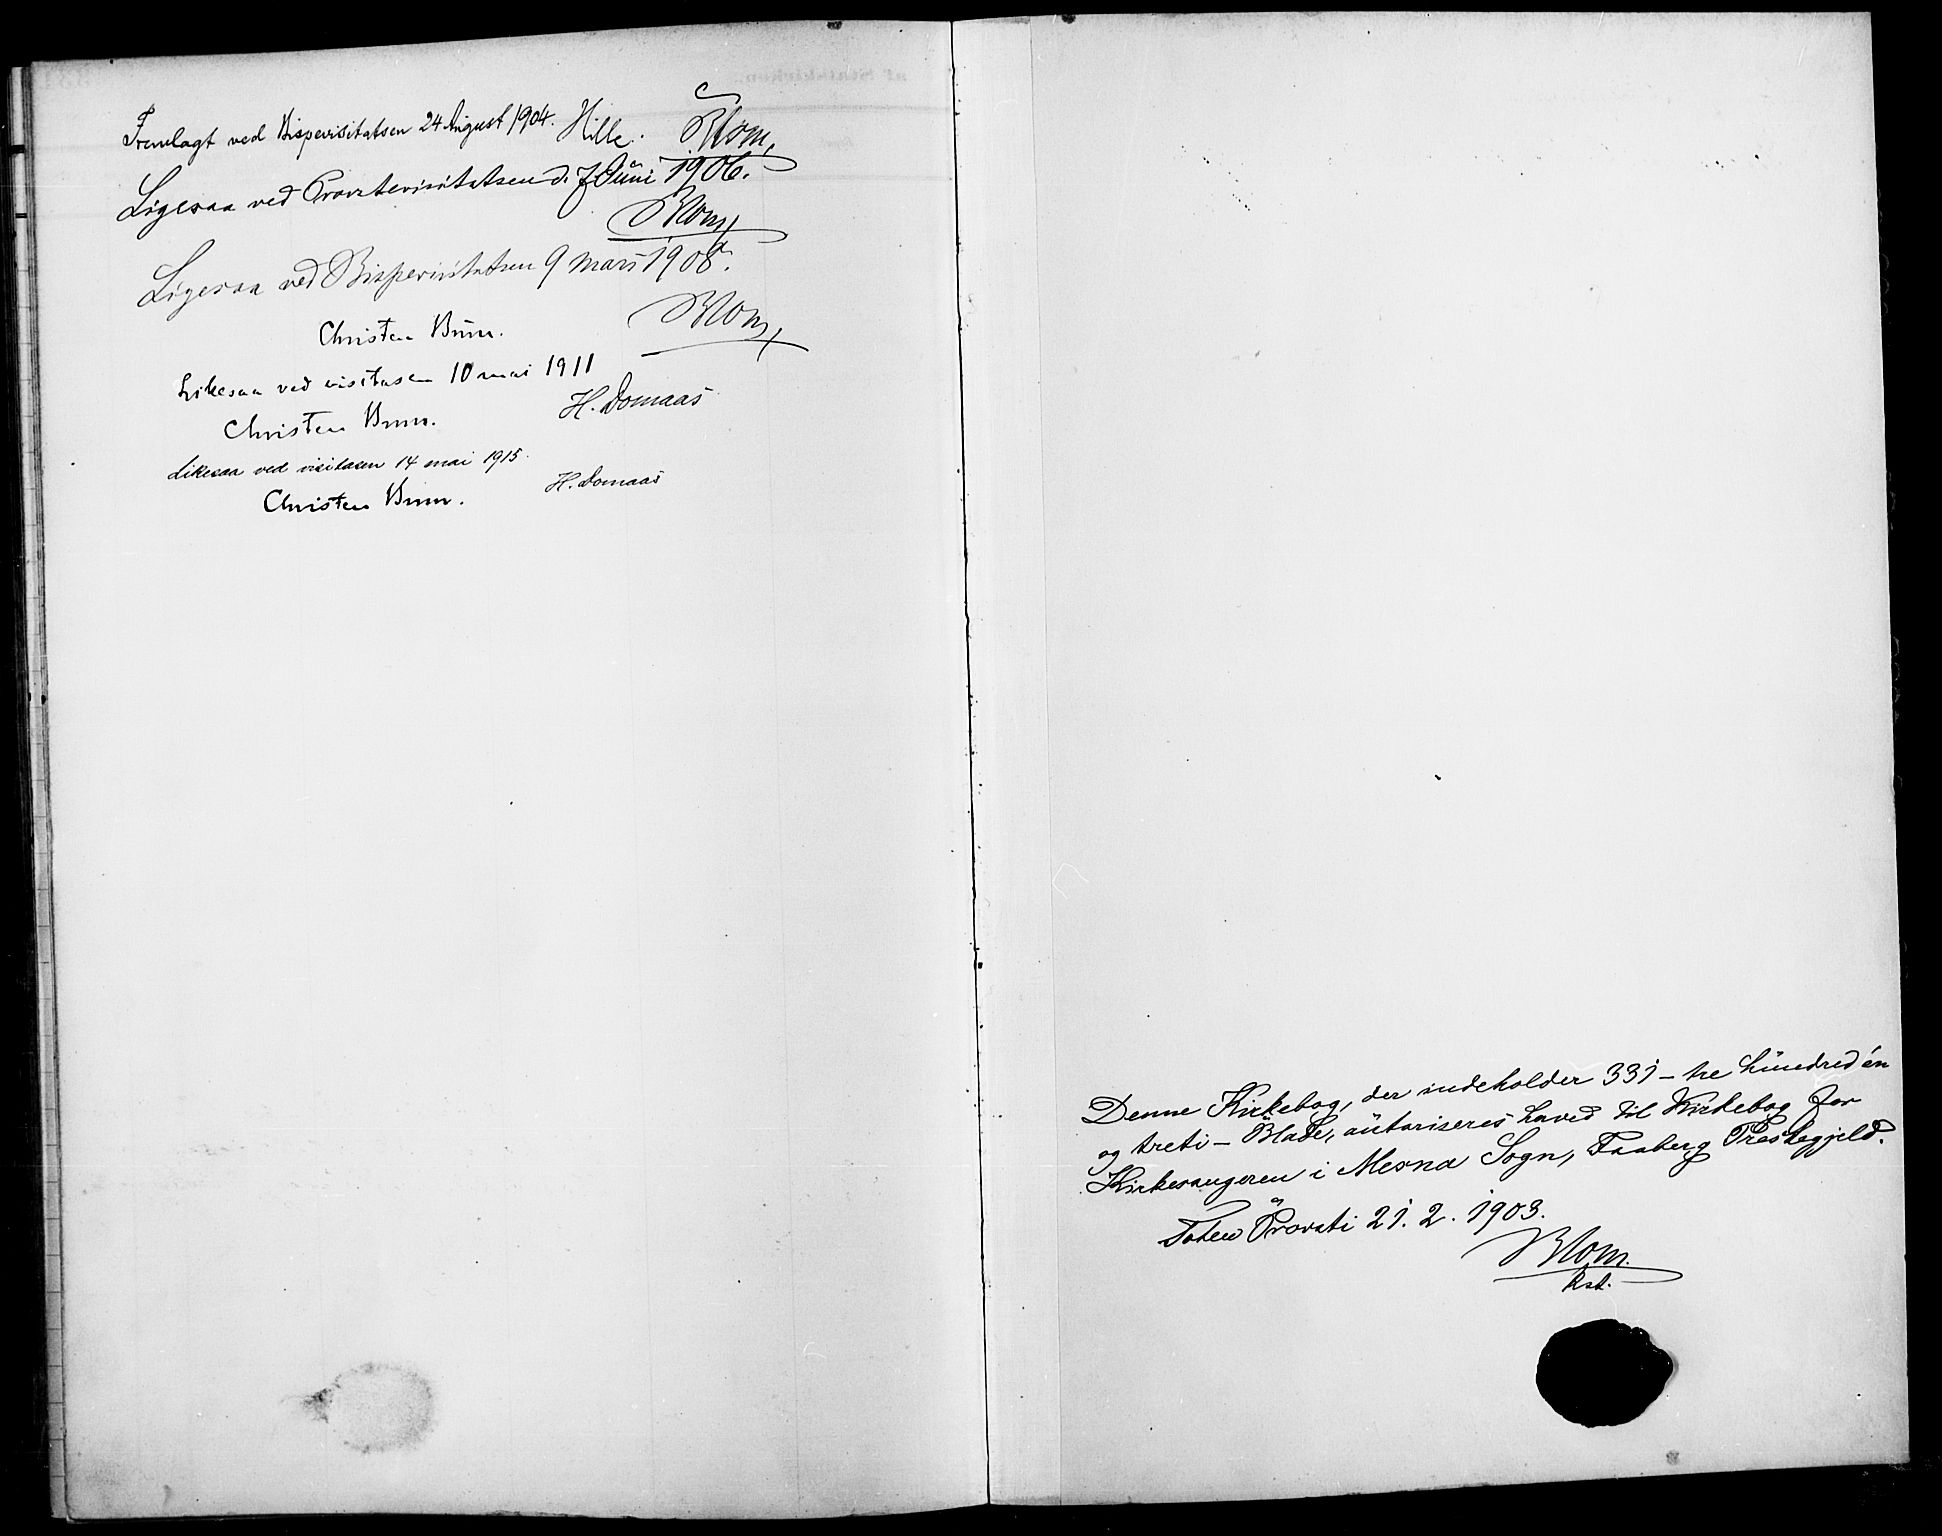 Fremlagt ved Bispevisitatsen 24 August 1904. Hille. Blom.
Ligesaa ved Provstevisitatsen d. 7 Juni 1906.
Blom
Ligesaa ved Bispevisitatsen 9 Mars 1908.
Blom
Christen Brun.
Likesaa ved visitasen 10 mai 1911
Christen Brun. H. Domaas
Likesaa ved visitasen 14 mai 1915.
Christen Brun. H. Domaas
Denne Kirkebog, der indeholder 331 – tre hundred én
og treti – Blade, autoriseres herved til Kirkebog for
Kirkesangeren i Mesna Sogn, Faaberg Præstegjeld.
Toten Provsti 21. 2. 1903.
Blom.